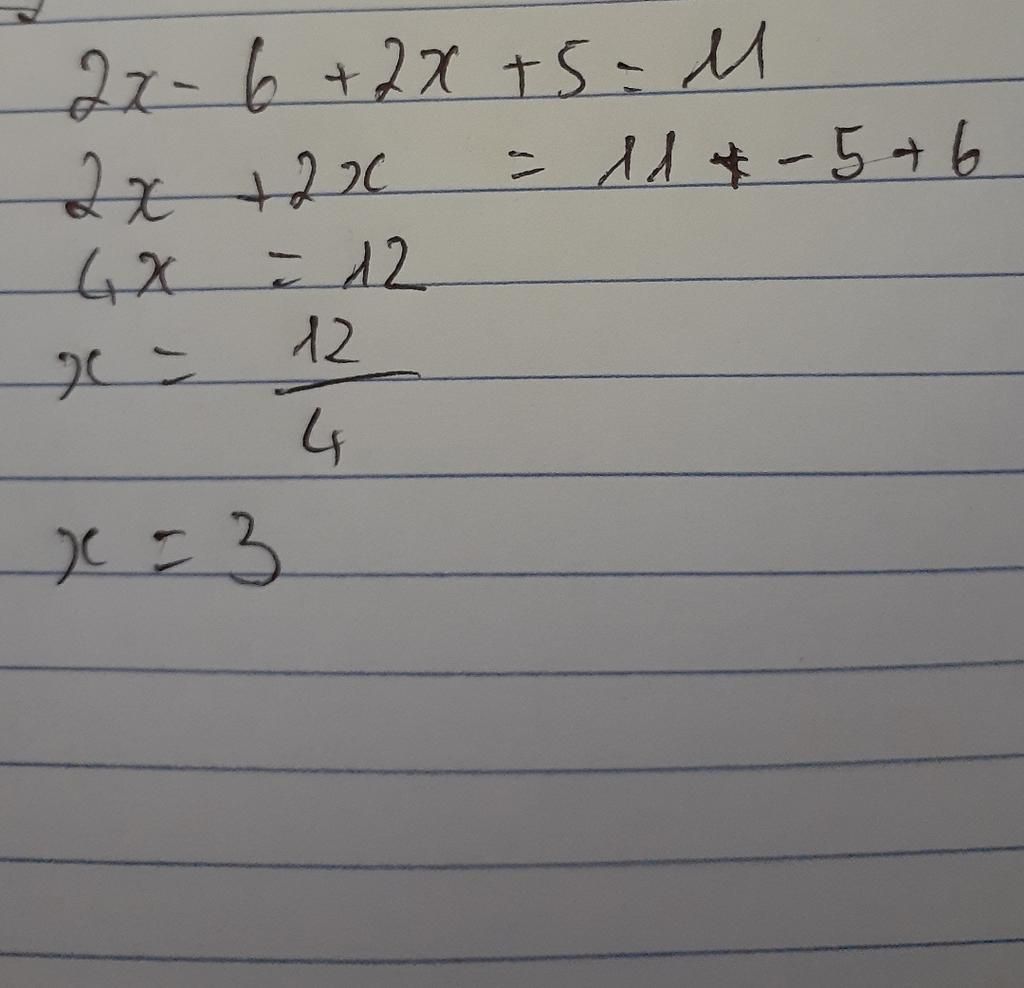 2x - 6 + 2x + 5 = 11
2x + 2x = 11 - 5 + 6
4x = 12
x = 12/4
x = 3